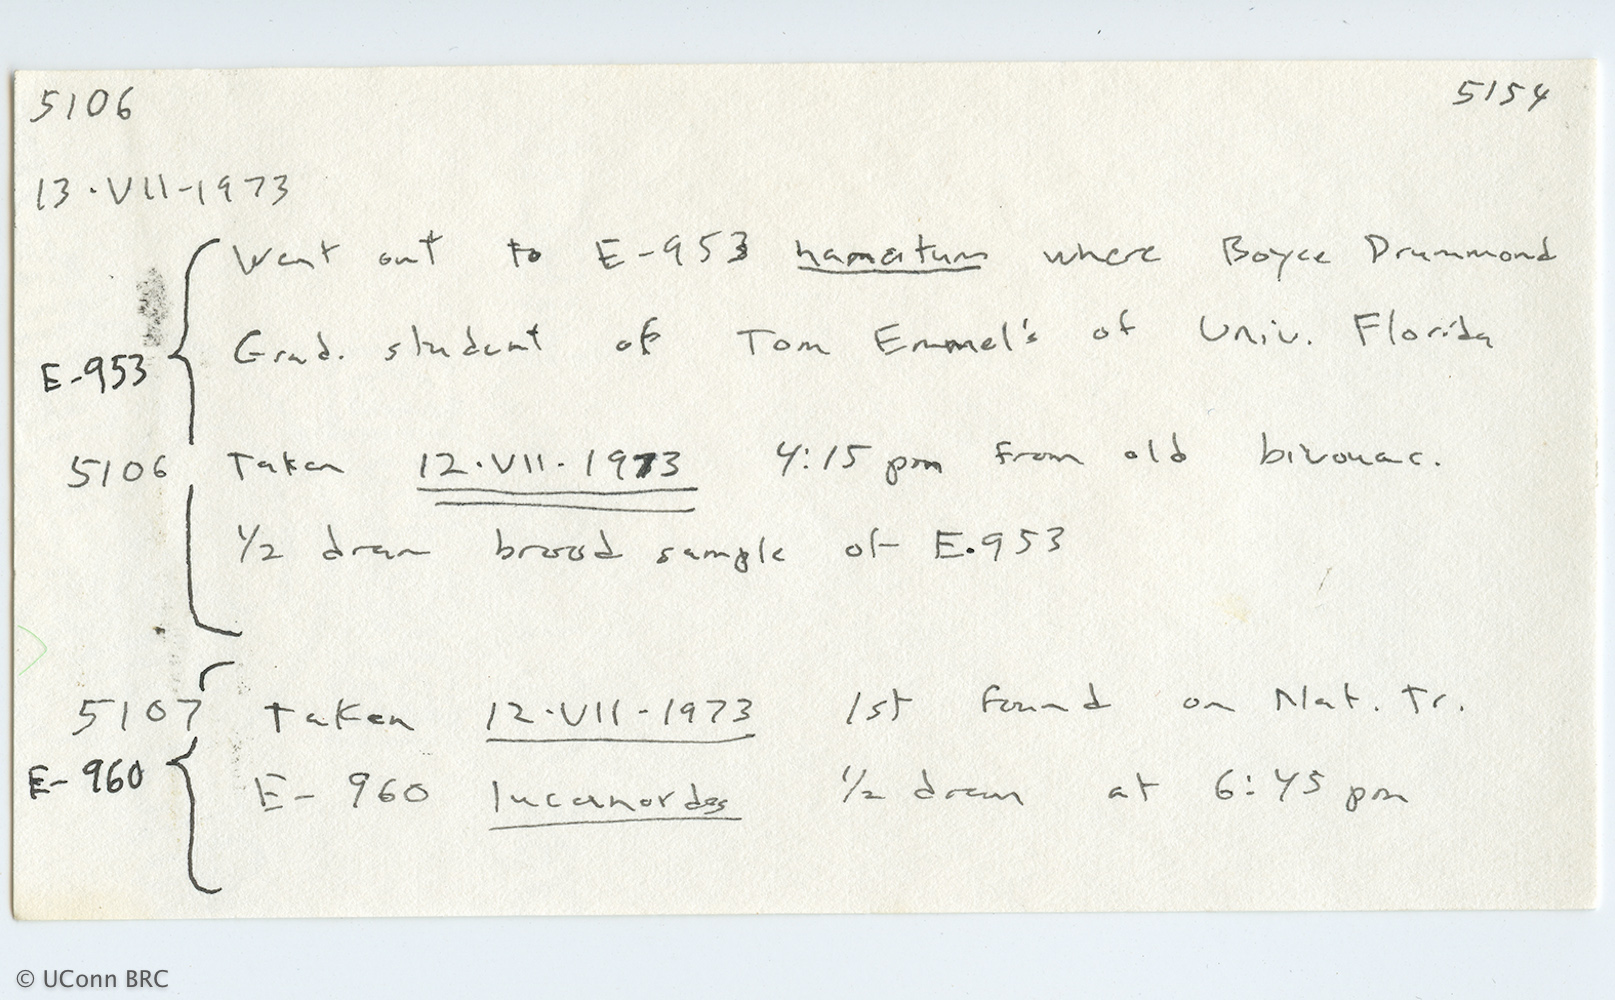 5106 5154
13·VII-1973
Went out to E-953 hamatum where Boyce Drummond
Grad. student of Tom Emmel's of Univ. Florida
E-953
5106 Taken 12·VII·1973 4:15 pm from old bivouac.
1/2 dram brood sample of E.953
5107 Taken 12·VII-1973 1st found on Nat. Tr.
E-960 E-960 lucanordes 1/2 dram at 6:45 pm
© UConn BRC